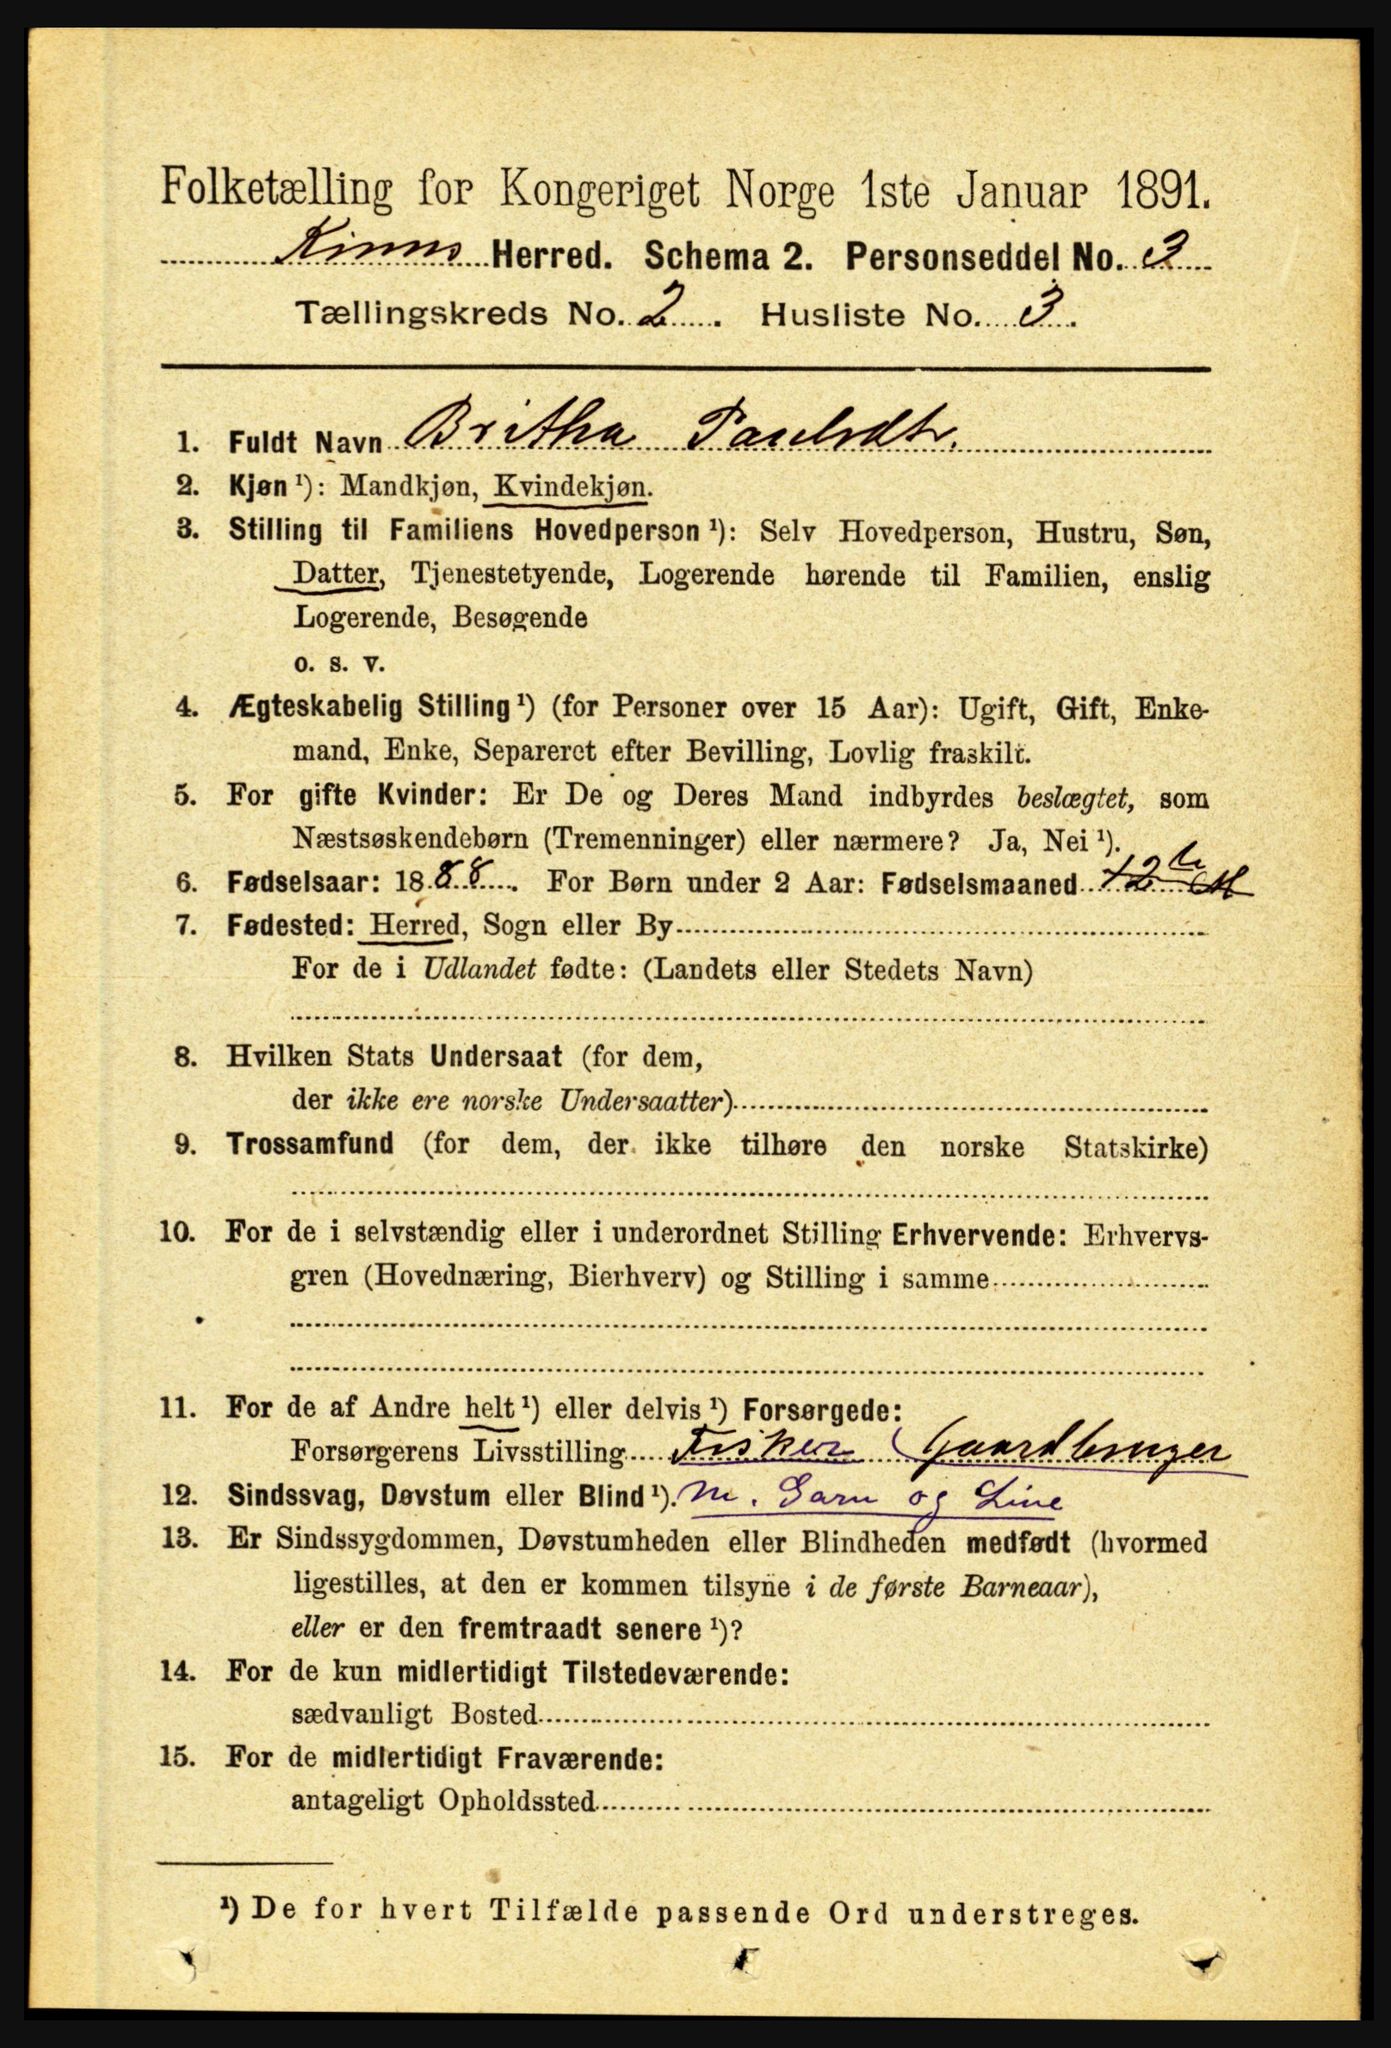 Folketælling for Kongeriget Norge 1ste Januar 1891.
Kinns Herred. Schema 2. Personseddel No. 3
Tællingskreds No. 2. Husliste No. 3.
1. Fuldt Navn Britha Paulsdtr.
2. Kjøn ¹): Mandkjøn, Kvindekjøn.
3. Stilling til Familiens Hovedperson ¹): Selv Hovedperson, Hustru, Søn,
Datter, Tjenestetyende, Logerende hørende til Familien, enslig
Logerende, Besøgende
o. s. v.
4. Ægteskabelig Stilling ¹) (for Personer over 15 Aar): Ugift, Gift, Enke-
mand, Enke, Separeret efter Bevilling, Lovlig fraskilt.
5. For gifte Kvinder: Er De og Deres Mand indbyrdes beslægtet, som
Næstsøskendebørn (Tremenninger) eller nærmere? Ja, Nei ¹).
6. Fødselsaar: 1888. For Børn under 2 Aar: Fødselsmaaned 12te M
7. Fødested: Herred, Sogn eller By
For de i Udlandet fødte: (Landets eller Stedets Navn)
8. Hvilken Stats Undersaat (for dem,
der ikke ere norske Undersaatter)
9. Trossamfund (for dem, der ikke tilhøre den norske Statskirke)
10. For de i selvstændig eller i underordnet Stilling Erhvervende: Erhvervs-
gren (Hovednæring, Bierhverv) og Stilling i samme
11. For de af Andre helt ¹) eller delvis ¹) Forsørgede:
Forsørgerens Livsstilling Fisker (Gaardbruger
12. Sindssvag, Døvstum eller Blind ¹). m. Garn og Line
13. Er Sindssygdommen, Døvstumheden eller Blindheden medfødt (hvormed
ligestilles, at den er kommen tilsyne i de første Barneaar),
eller er den fremtraadt senere ¹)?
14. For de kun midlertidigt Tilstedeværende:
sædvanligt Bosted
15. For de midlertidigt Fraværende:
antageligt Opholdssted
¹) De for hvert Tilfælde passende Ord understreges.